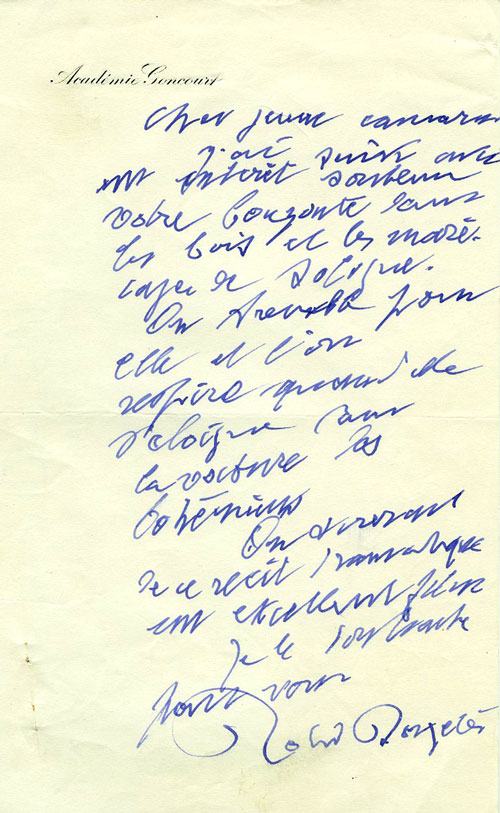 Académie Goncourt
Cher jeune camarade
j'ai suivi avec
un intérêt soutenu
votre dans
les bois et les maré-
cages de Sologne.
On tremble pour
elle et l'on
respire quand elle
s'éloigne dans
la voiture des
bohémiens
On
de ce récit dramatique
un excellent film
Je le souhaite
pour vous
Roland Dorgelès